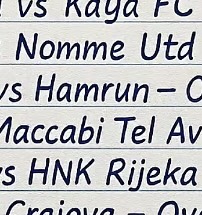 vs Kaya FC
Nomme Utd
vs Hamrun –
Maccabi Tel Av
vs HNK Rijeka
Craiova –